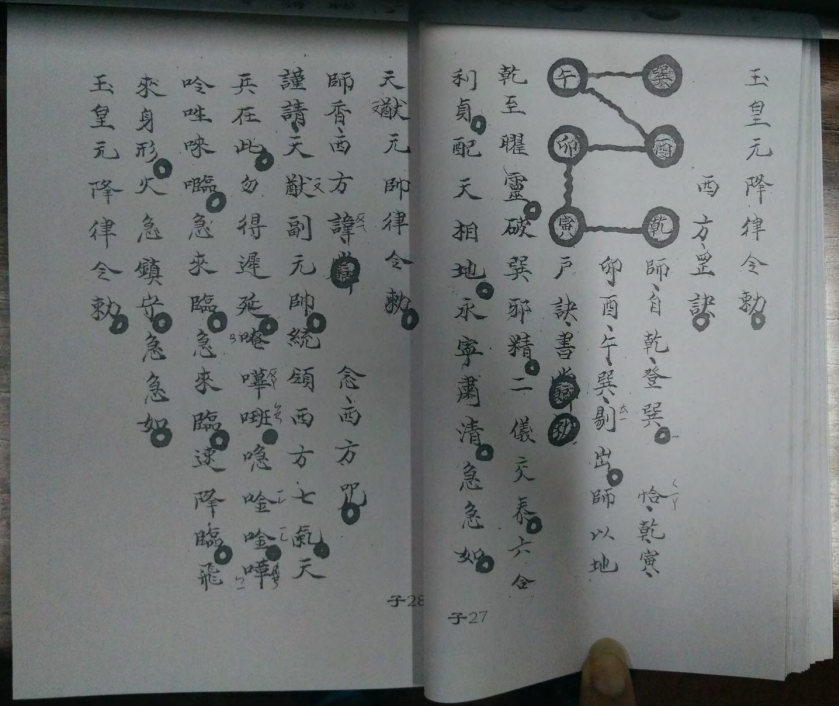 玉皇元降律令勅
西方罡訣
師自乾登巽 恰乾寅
卯酉午巽剔出師以地
戶訣書
巽 酉 乾
午 卯 寅
乾至曜靈破巽邪精二儀交泰六合
利貞配天相地永寧肅清急急如
子27
天猷元帥律令勅
師香西方諱 念西方咒
謹請天猷副元帥統領西方七氣天
兵在此勿得遲延唵嘩㘱唸唫唫嘩
唥㕽唻𡄴急來臨急來臨速降臨飛
來身形火急鎮守急急如
玉皇元降律令勅
子28